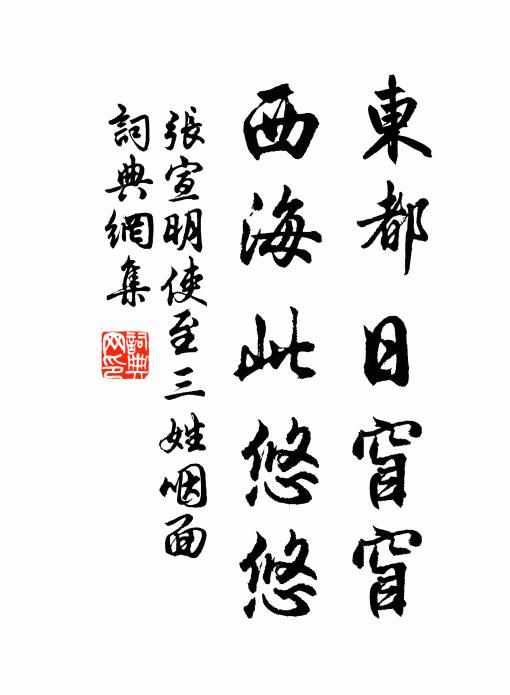 東都日窅窅
西海此悠悠
張宣明使至三姓咽面
詞典網集
詞典網印